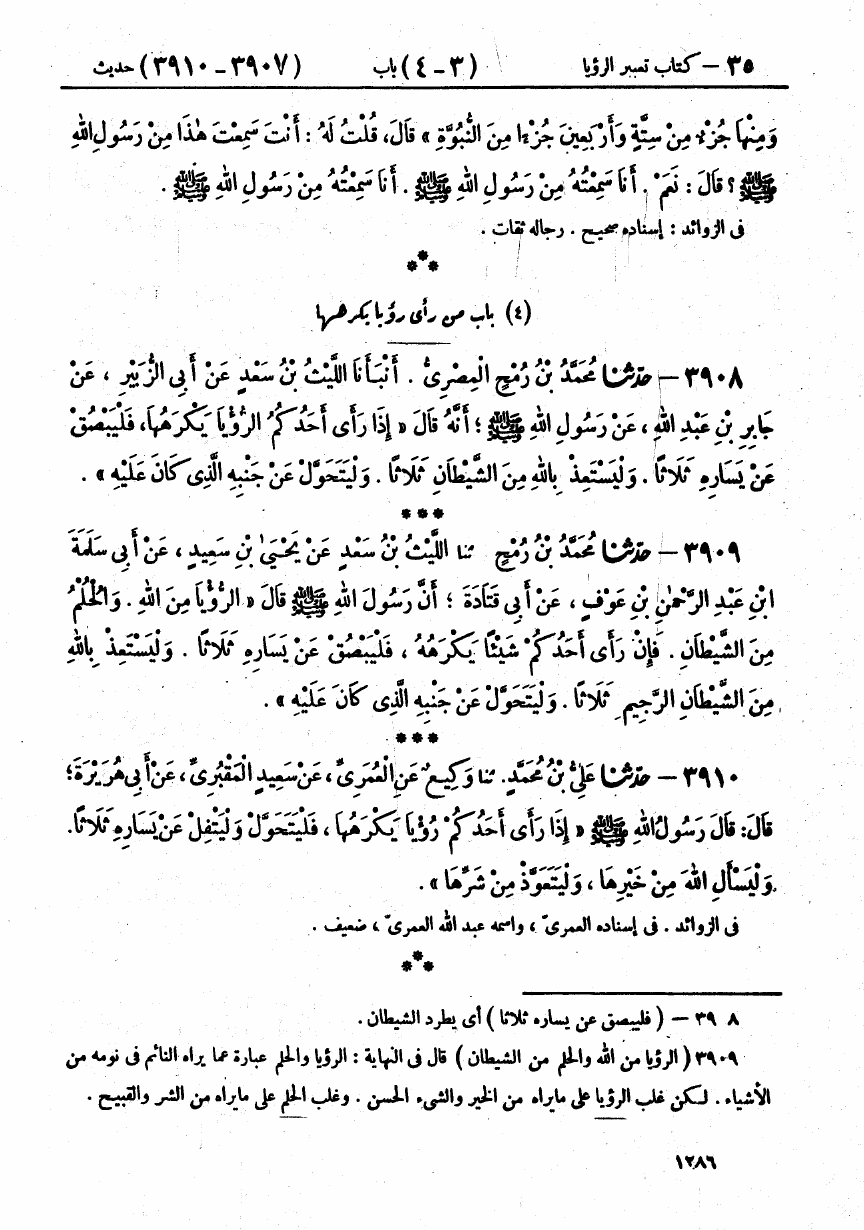 ٣٥ – كتاب تعبير الرؤيا (٣ – ٤) باب (٣٩٠٧ – ٣٩١٠) حديث
وَمِنْهَا جُزْءٌ مِنْ سِتَّةٍ وَأَرْبَعِينَ جُزْءًا مِنَ النُّبُوَّةِ » قَالَ، قُلْتُ لَهُ : أَنْتَ سَمِعْتَ هٰذَا مِنْ رَسُولِ اللهِ
ﷺ ؟ قَالَ : نَعَمْ . أَنَا سَمِعْتُهُ مِنْ رَسُولِ اللهِ ﷺ . أَنَا سَمِعْتُهُ مِنْ رَسُولِ اللهِ ﷺ .
فى الزوائد : إسناده صحيح . رجاله ثقات .
***
(٤) باب من رأى رؤيا يكرهها
٣٩٠٨ – حدّثنا مُحَمَّدُ بْنُ رُمْحٍ الْمِصْرِىُّ . أَنْبَأَنَا اللَّيْثُ بْنُ سَعْدٍ عَنْ أَبِى الزُّبَيْرِ ، عَنْ
جَابِرِ بْنِ عَبْدِ اللهِ ، عَنْ رَسُولِ اللهِ ﷺ ؛ أَنَّهُ قَالَ « إِذَا رَأَى أَحَدُكُمُ الرُّؤْيَا يَكْرَهُهَا، فَلْيَبْصُقْ
عَنْ يَسَارِهِ ثَلَاثًا . وَلْيَسْتَعِذْ بِاللهِ مِنَ الشَّيْطَانِ ثَلَاثًا . وَلْيَتَحَوَّلْ عَنْ جَنْبِهِ الَّذِى كَانَ عَلَيْهِ » .
***
٣٩٠٩ – حدّثنا مُحَمَّدُ بْنُ رُمْحٍ ثنا اللَّيْثُ بْنُ سَعْدٍ عَنْ يَحْيَىٰ بْنِ سَعِيدٍ ، عَنْ أَبِى سَلَمَةَ
ابْنِ عَبْدِ الرَّحْمٰنِ بْنِ عَوْفٍ ، عَنْ أَبِى قَتَادَةَ ؛ أَنَّ رَسُولَ اللهِ ﷺ قَالَ « الرُّؤْيَا مِنَ اللهِ . وَالْحُلْمُ
مِنَ الشَّيْطَانِ . فَإِنْ رَأَى أَحَدُكُمْ شَيْئًا يَكْرَهُهُ ، فَلْيَبْصُقْ عَنْ يَسَارِهِ ثَلَاثًا . وَلْيَسْتَعِذْ بِاللهِ
مِنَ الشَّيْطَانِ الرَّجِيمِ ثَلَاثًا . وَلْيَتَحَوَّلْ عَنْ جَنْبِهِ الَّذِى كَانَ عَلَيْهِ » .
***
٣٩١٠ – حدّثنا عَلِىُّ بْنُ مُحَمَّدٍ. ثنا وَكِيعٌ عَنِ الْعُمَرِىِّ، عَنْ سَعِيدٍ الْمَقْبُرِىِّ، عَنْ أَبِى هُرَيْرَةَ؛
قَالَ: قَالَ رَسُولُ اللهِ ﷺ « إِذَا رَأَى أَحَدُكُمْ رُؤْيَا يَكْرَهُهَا ، فَلْيَتَحَوَّلْ وَلْيَتْفِلْ عَنْ يَسَارِهِ ثَلَاثًا.
وَلْيَسْأَلِ اللهَ مِنْ خَيْرِهَا ، وَلْيَتَعَوَّذْ مِنْ شَرِّهَا » .
فى الزوائد . فى إسناده العمرىّ ، واسمه عبد الله العمرىّ ، ضعيف .
***
٣٩ ٨ – ( فليبصق عن يساره ثلاثا ) أى يطرد الشيطان .
٣٩٠٩ ( الرؤيا من الله والحلم من الشيطان ) قال فى النهاية : الرؤيا والحلم عبارة عما يراه النائم فى نومه من
الأشياء . لكن غلب الرؤيا على مايراه من الخير والشىء الحسن . وغلب الحلم على مايراه من الشر والقبيح .
١٢٨٦